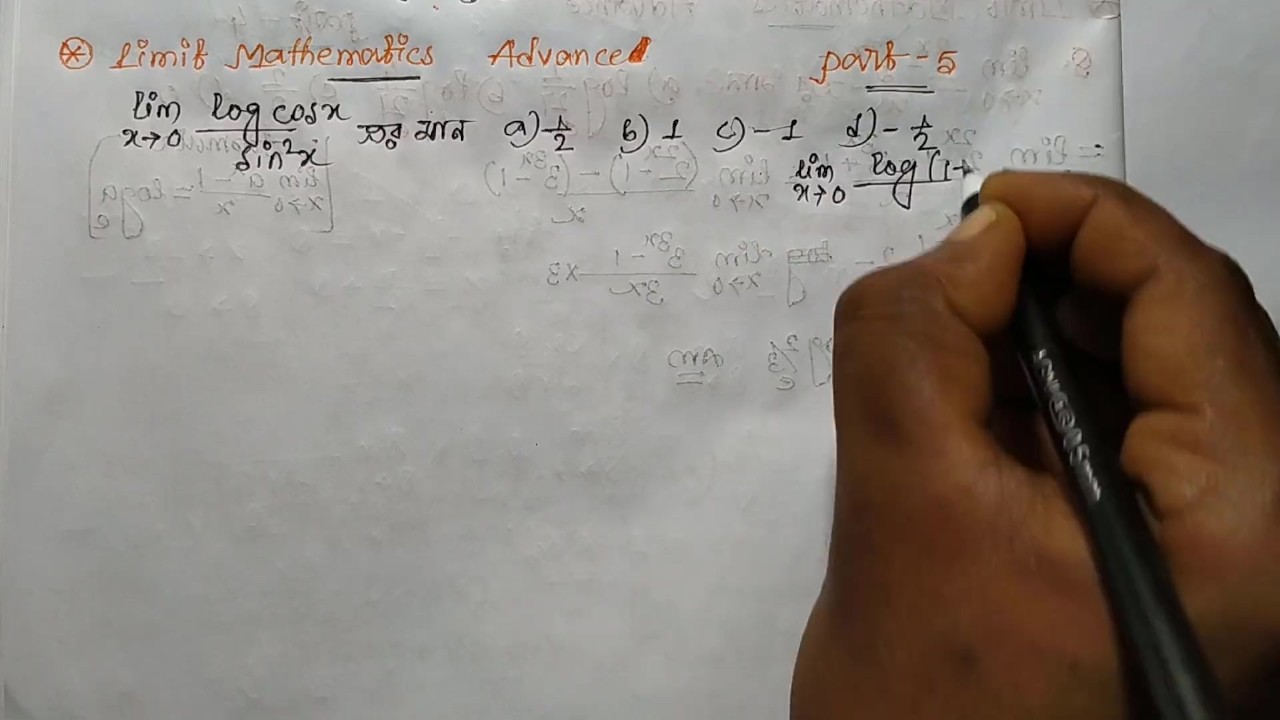 * Limit Mathematics Advanced Part-5
lim x→0 log cosx / sin²x এর মান a) 1/2 b) 1 c) -1 d) -1/2
lim x→0 log(1+